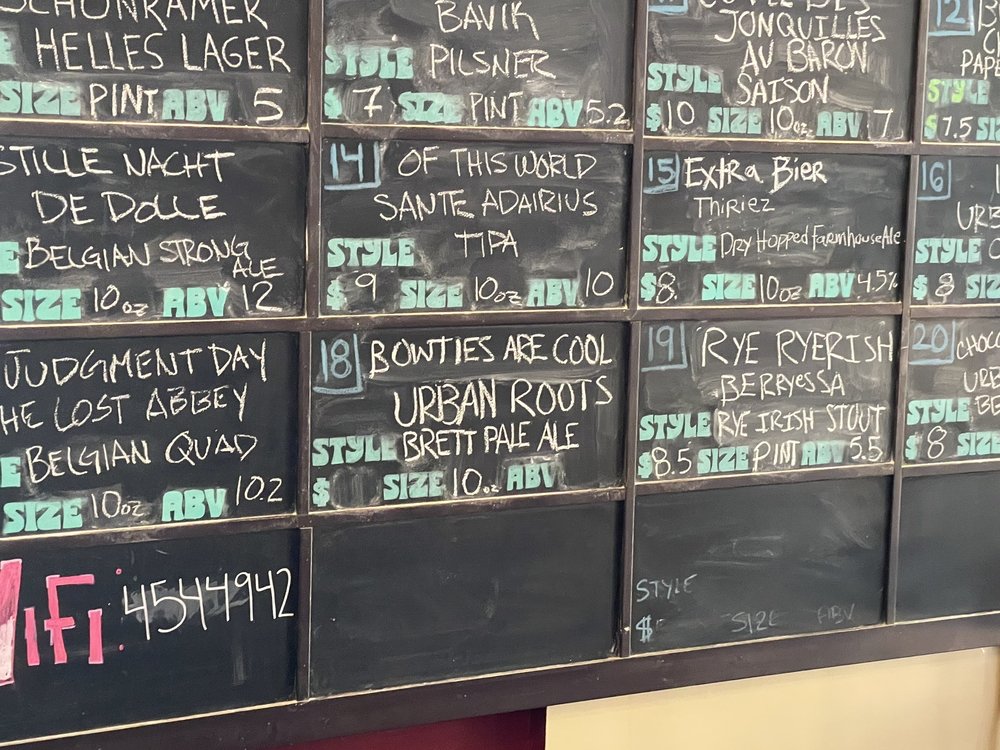 SCHÖNRAMER
HELLES LAGER
SIZE PINT ABV 5
BAVIK
PILSNER
STYLE
$ 7 SIZE PINT ABV 5.2
JONQUILLES
AU BARON
STYLE SAISON
$10 SIZE 10oz ABV 7
12
STYLE
$7.5
STILLE NACHT
DE DOLLE
BELGIAN STRONG
ALE
SIZE 10oz ABV 12
14 OF THIS WORLD
SANTE ADAIRIUS
STYLE TIPA
$ 9 SIZE 10oz ABV 10
15 Extra Bier
Thiriez
STYLE Dry Hopped Farmhouse Ale
$8. SIZE 10oz ABV 4.5%
16
STYLE
$ 8 SIZE
JUDGMENT DAY
THE LOST ABBEY
BELGIAN QUAD
SIZE 10oz ABV 10.2
18 BOWTIES ARE COOL
URBAN ROOTS
STYLE BRETT PALE ALE
$ SIZE 10oz ABV
19 RYE RYERISH
BERRYESSA
STYLE RYE IRISH STOUT
$8.5 SIZE PINT ABV 5.5
20 CHOCO
URB
STYLE BE
$ 8 SIZE
WiFi: 4544942
STYLE
$ SIZE ABV